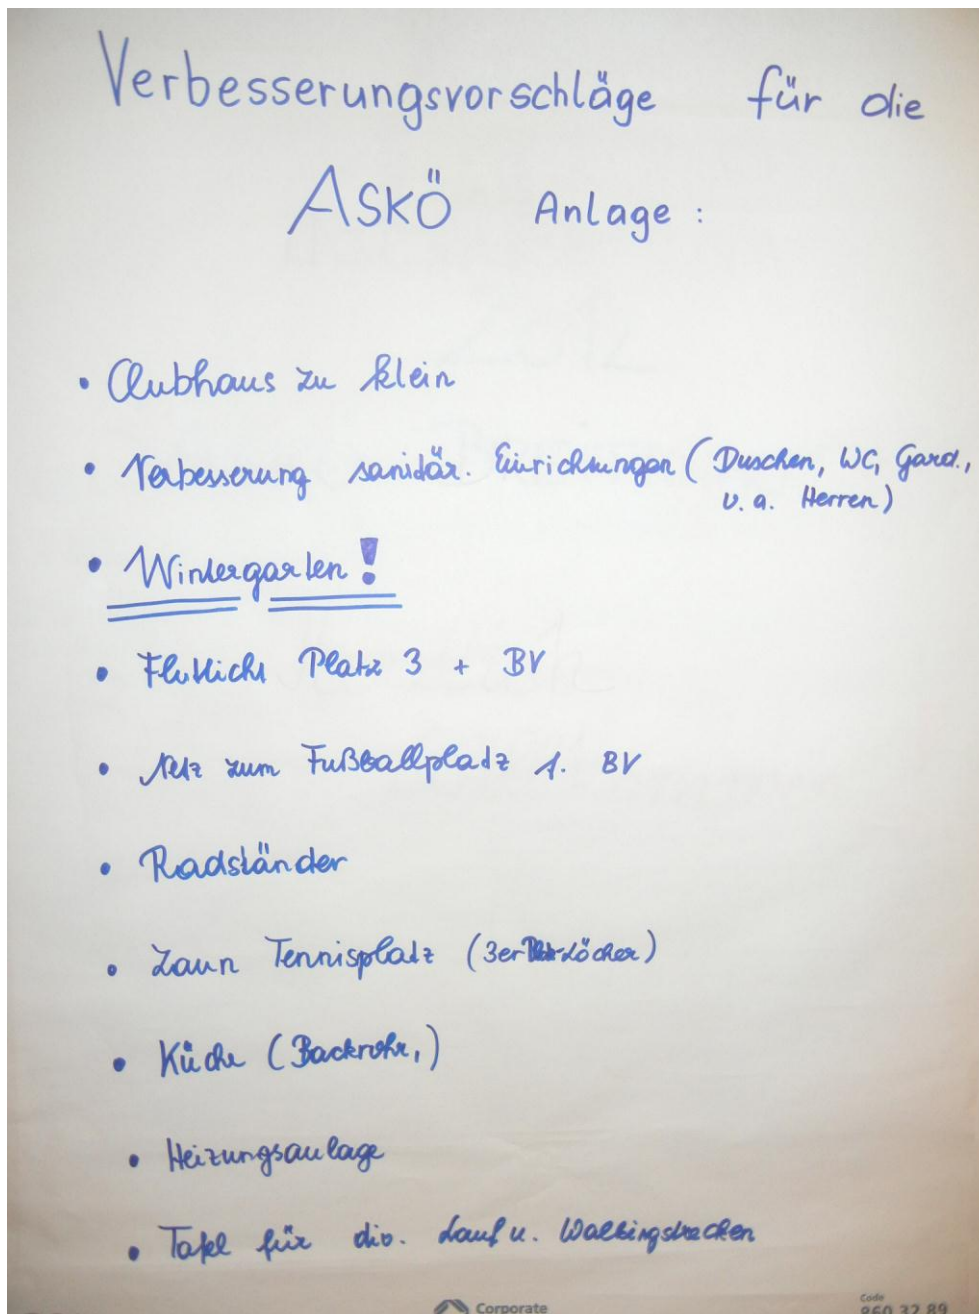 Verbesserungsvorschläge für die
ASKÖ Anlage :
• Clubhaus zu klein
• Verbesserung sanitär. Einrichtungen ( Duschen, WC, Gard.,
v. a. Herren )
• Wintergarten !
• Flutlicht Platz 3 + BV
• Netz zum Fußballplatz 1. BV
• Radständer
• Zaun Tennisplatz ( 3er Löcher )
• Küche ( Backrohr, )
• Heizungsanlage
• Tafel für div. Lauf u. Walkingstrecken
Corporate
Code
860 32 89